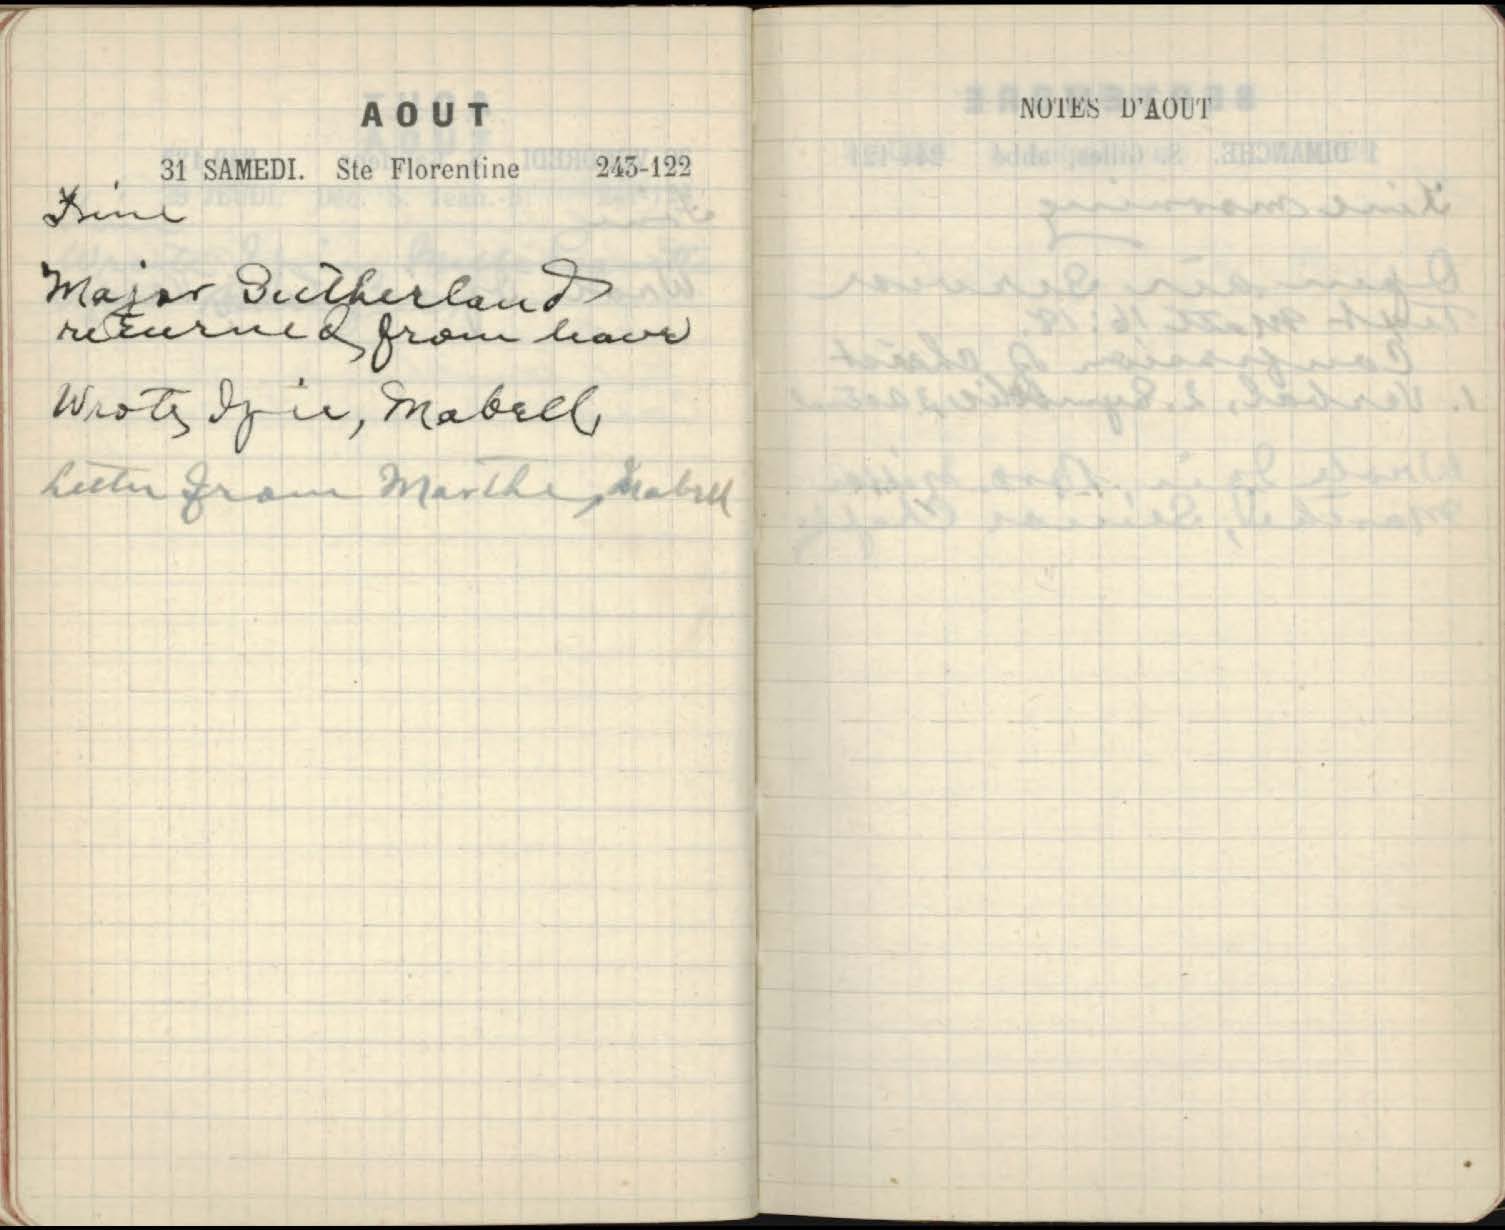 AOUT
31 SAMEDI. Ste Florentine 243-122
Fine
Major Sutherland
returned from leave
Wrote Izie, Mabell
Letter from Marthe, Mabell
NOTES D'AOUT